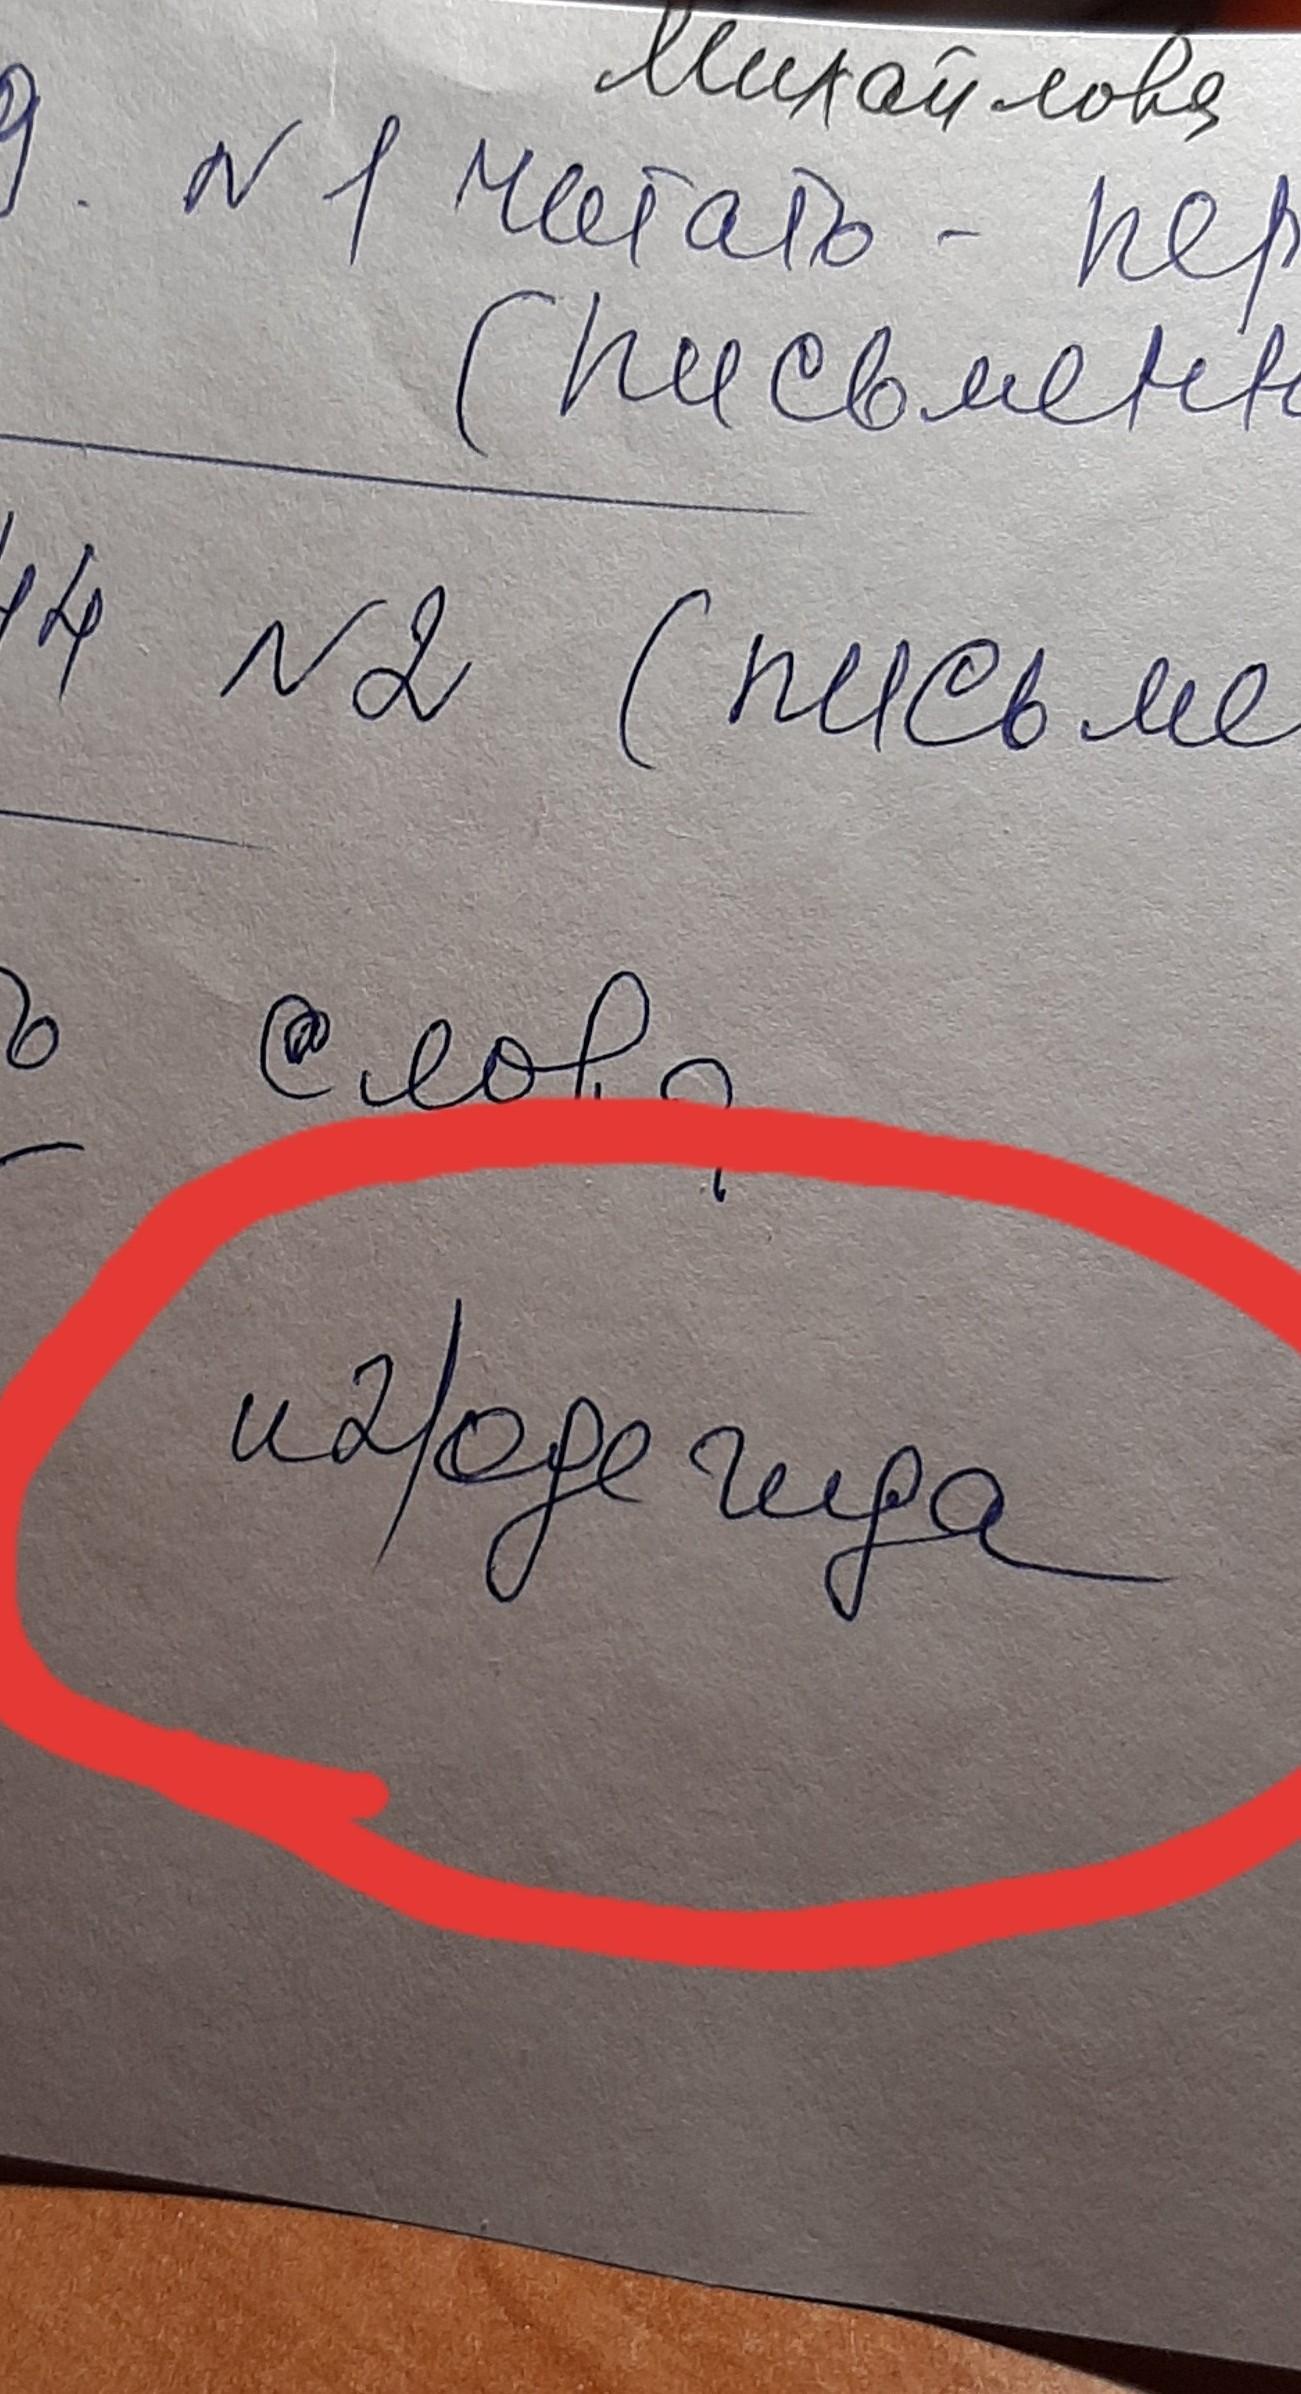 Михайлова
9. N 1 читать - пер
(письменн
44 N2 (письме
ь слова
и 2/одежда